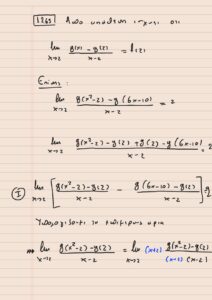 1265 Από υπόθεση ισχύει ότι
lim x→2 g(x) - g(2) / x-2 = l(2)
Επίσης:
lim x→2 g(x²-2) - g(6x-10) / x-2 = 2
lim x→2 g(x²-2) - g(2) + g(2) - g(6x-10) / x-2 = 2
① lim x→2 [ g(x²-2) - g(2) / x-2 - g(6x-10) - g(2) / x-2 ]
τα όρια
lim x→2 g(x²-2) - g(2) / x-2 = lim x→2 (x+2) g(x²-2) - g(2) / (x+2) (x-2)